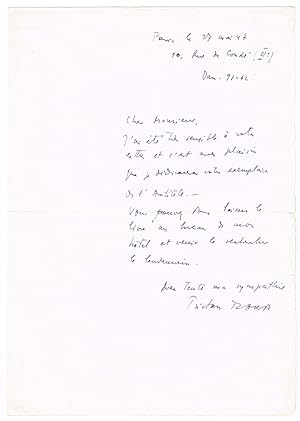 Paris le 27 mai 47
10, Rue de Condé (VIe)
Dan. 91-62
Cher Monsieur,
J'ai été très sensible à votre
lettre et c'est avec plaisir
que je dédicacerai votre exemplaire
de l'Antitête. —
Vous pouvez donc laisser le
livre au bureau de mon
hôtel et venir le rechercher
le lendemain.
Avec toute ma sympathie
Tristan TZARA